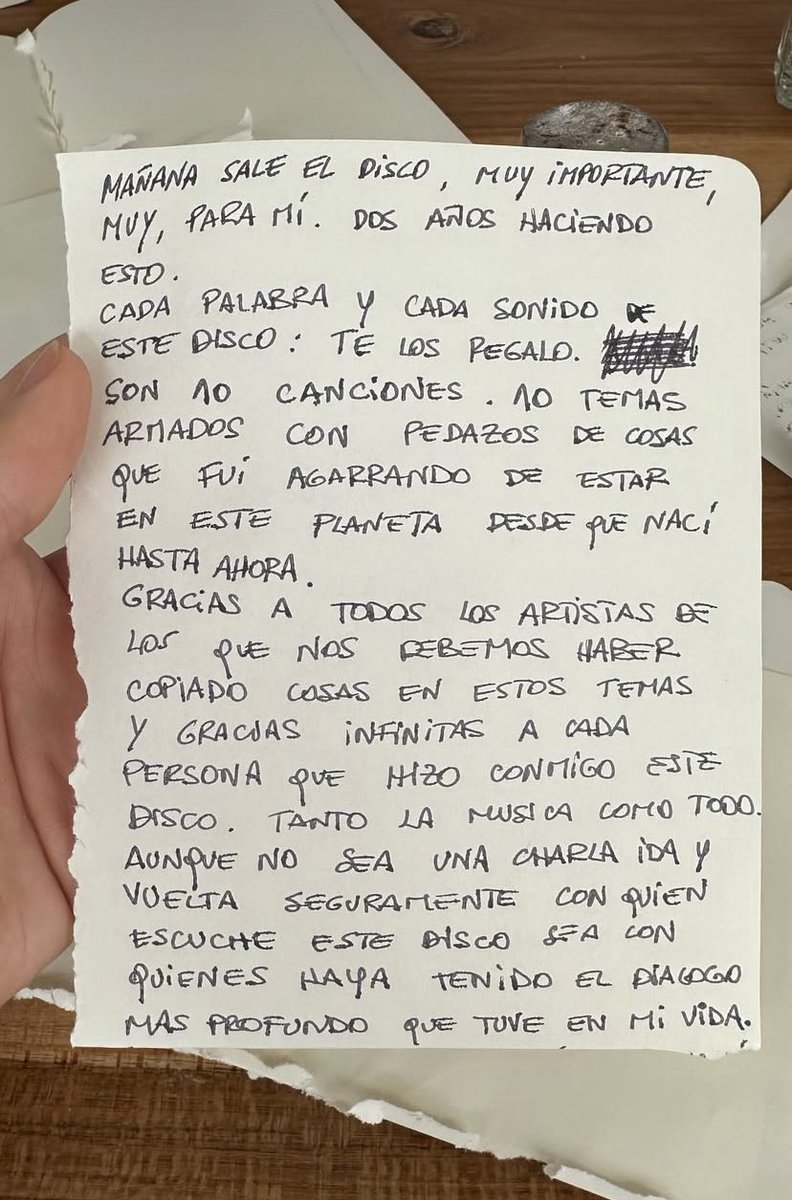 MAÑANA SALE EL DISCO, MUY IMPORTANTE,
MUY, PARA MÍ. DOS AÑOS HACIENDO
ESTO.
CADA PALABRA Y CADA SONIDO DE
ESTE DISCO: TE LOS REGALO.
SON 10 CANCIONES. 10 TEMAS
ARMADOS CON PEDAZOS DE COSAS
QUE FUI AGARRANDO DE ESTAR
EN ESTE PLANETA DESDE QUE NACÍ
HASTA AHORA.
GRACIAS A TODOS LOS ARTISTAS DE
LOS QUE NOS DEBEMOS HABER
COPIADO COSAS EN ESTOS TEMAS
Y GRACIAS INFINITAS A CADA
PERSONA QUE HIZO CONMIGO ESTE
DISCO. TANTO LA MUSICA COMO TODO.
AUNQUE NO SEA UNA CHARLA IDA Y
VUELTA SEGURAMENTE CON QUIEN
ESCUCHE ESTE DISCO SEA CON
QUIENES HAYA TENIDO EL DIALOGO
MAS PROFUNDO QUE TUVE EN MI VIDA.